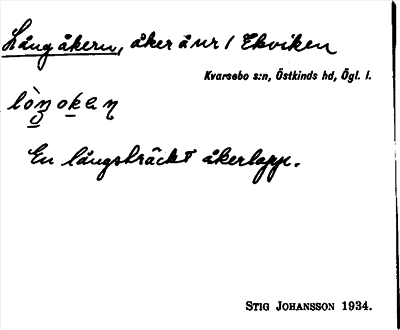 Långåkern, åker å nr 1 Ekviken
Kvarsebo s:n, Östkinds hd, Ögl. l.
En långsträckt åkerlapp.
STIG JOHANSSON 1934.